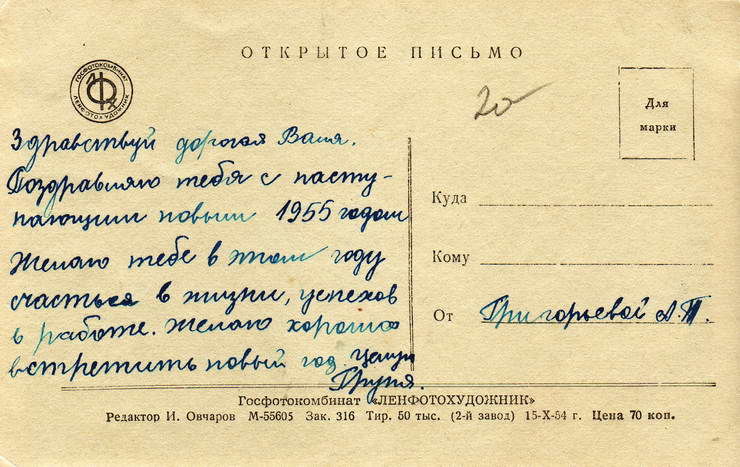 ОТКРЫТОЕ ПИСЬМО
ГОСФОТОКОМБИНАТ
ЛЕНФОТОХУДОЖНИК
20
Для
марки
Здравствуй дорогая Валя.
Поздравляю тебя с насту-
пающим новым 1955 годом
Желаю тебе в этом году
счастья в жизни, успехов
в работе. Желаю хорошо
встретить новый год. Целую
Груня.
Куда
Кому
От Григорьевой А.Т.
Госфотокомбинат «ЛЕНФОТОХУДОЖНИК»
Редактор И. Овчаров М-55605 Зак. 316 Тир. 50 тыс. (2-й завод) 15-X-54 г. Цена 70 коп.